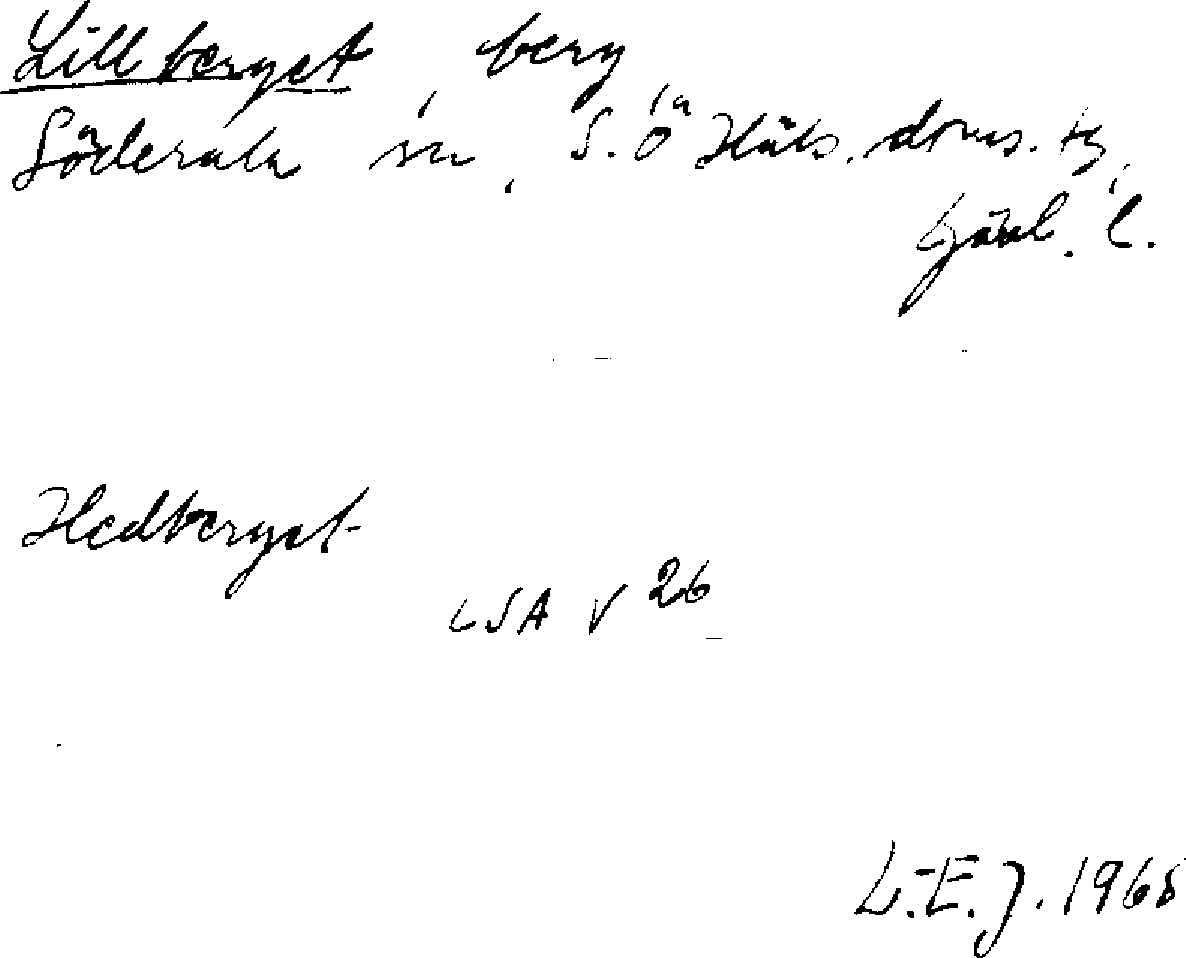 Lillberget, berg
Söderala sn, S. ö Häls. doms. tg,
Gävl. l.
Hedberget
LSA V 26
L.-E. J. 1968